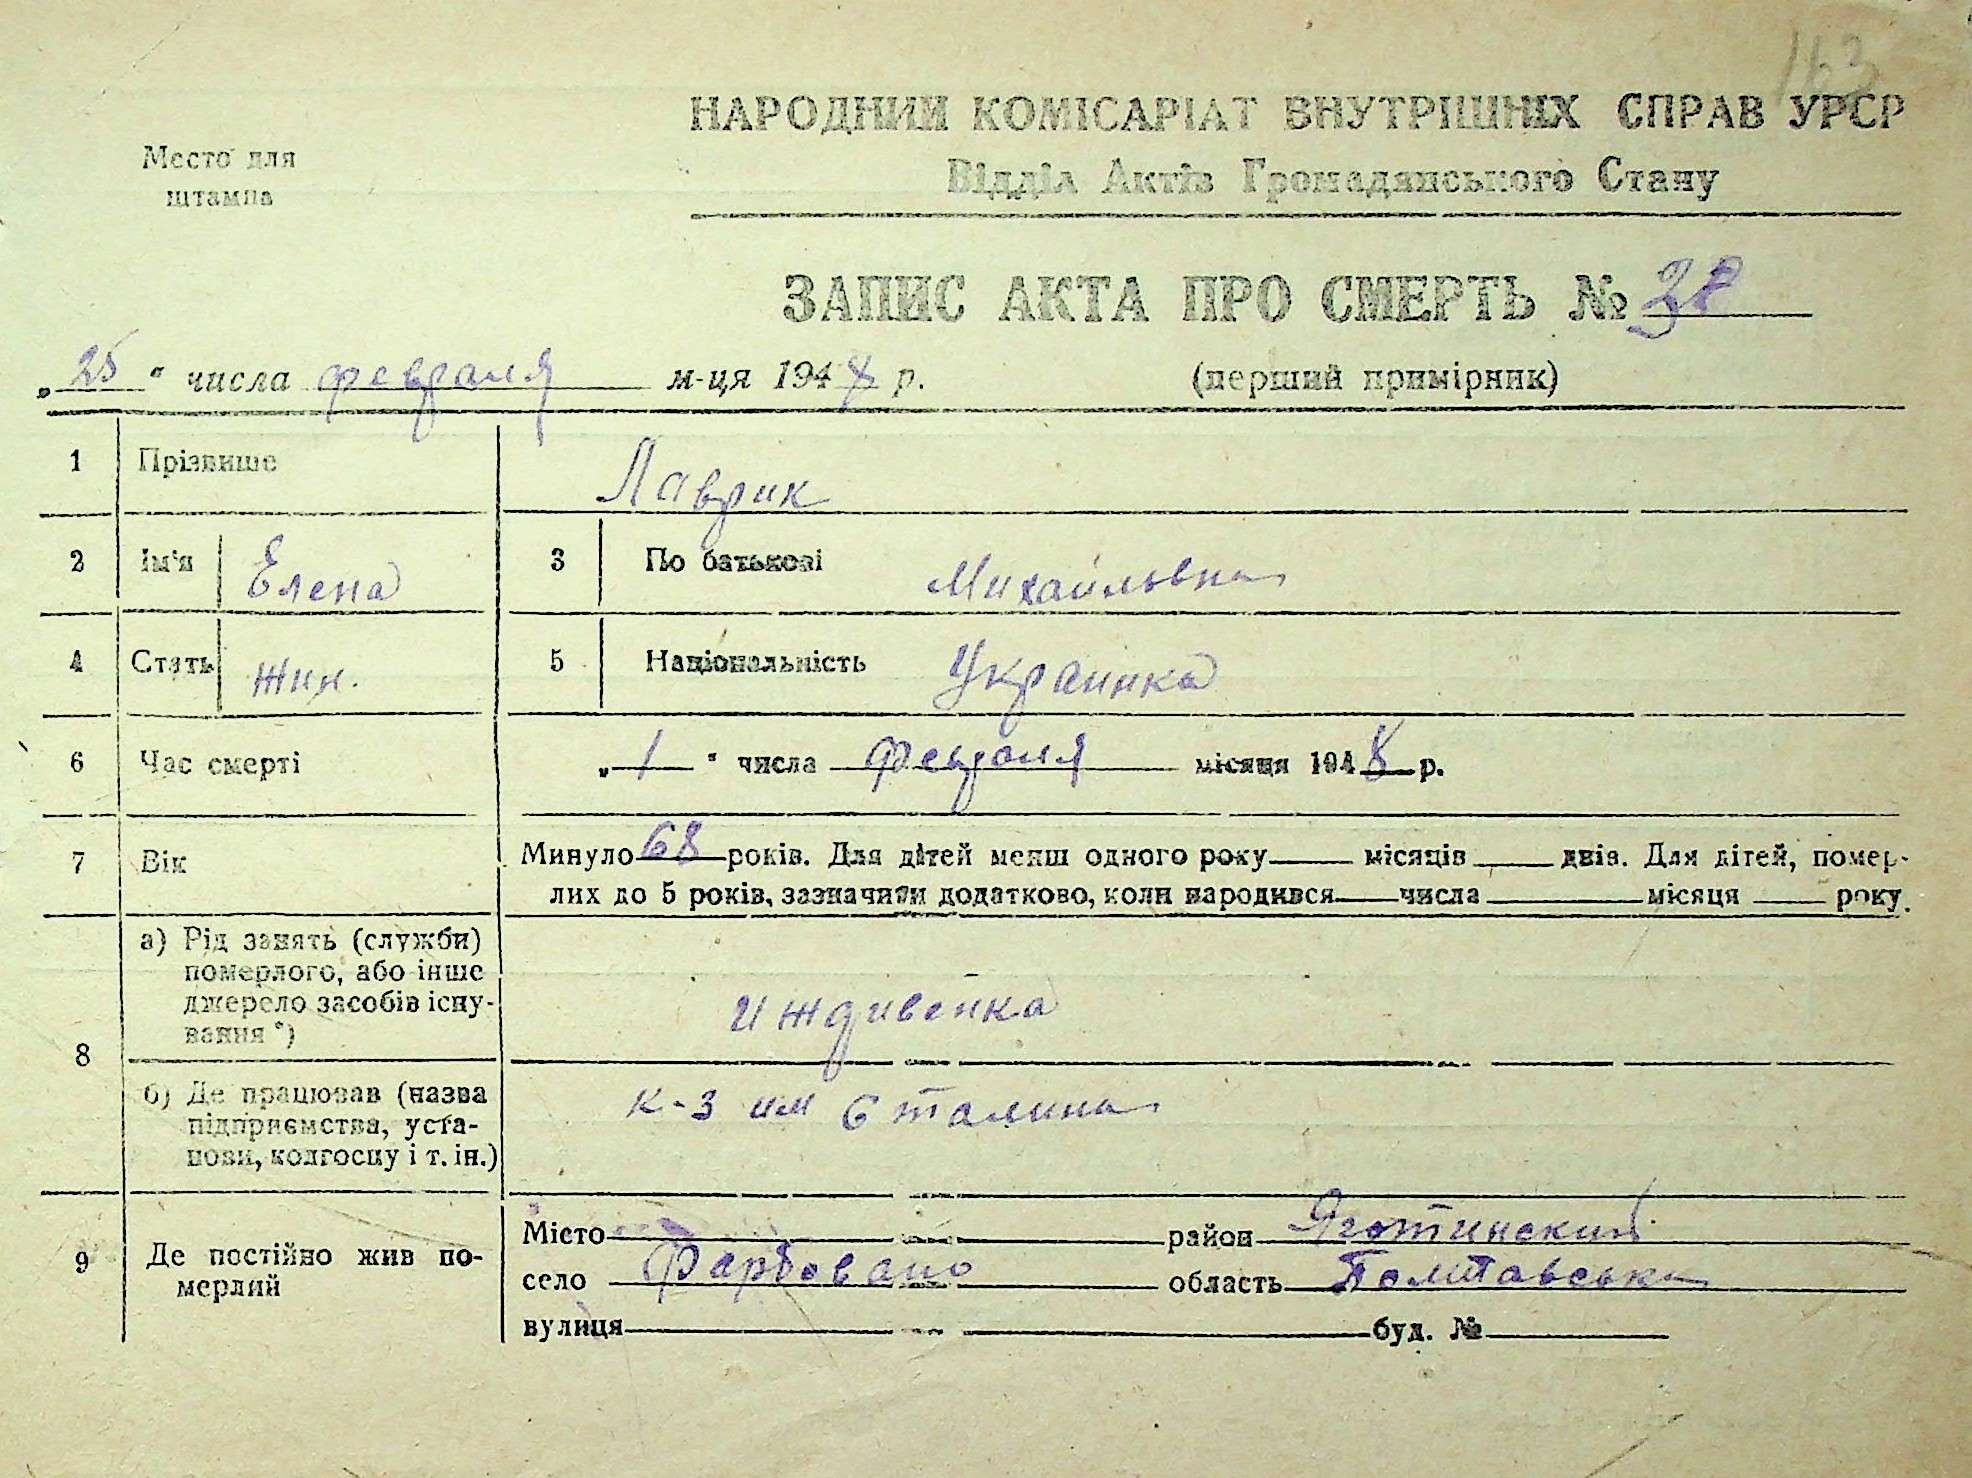 163
НАРОДНИЙ КОМІСАРІАТ ВНУТРІШНІХ СПРАВ УРСР
Место для штампа
Відділ Актів Громадянського Стану
ЗАПИС АКТА ПРО СМЕРТЬ № 38
„25“ числа февраля м-ця 1948 р. (перший примірник)
1 Прізвише Лаврик
2 Ім'я Елена 3 По батькові Михайловна
4 Стать жин. 5 Національність Украинка
6 Час смерті „1“ числа февраля місяця 1948 р.
7 Вік Минуло 68 років. Для дітей менш одного року місяців двів. Для дітей, помер-
лих до 5 років, зазначити додатково, коли народився числа місяця року.
8 а) Рід занять (служби)
померлого, або інше
джерело засобів існу-
вання *) иждивенка
б) Де працював (назва
підприємства, уста-
нови, колгоспу і т. ін.) к-з им Сталина
9 Де постійно жив по-
мерлий
Місто район Яготинский
село Фарбовано область Полтавська
вулиця буд. №